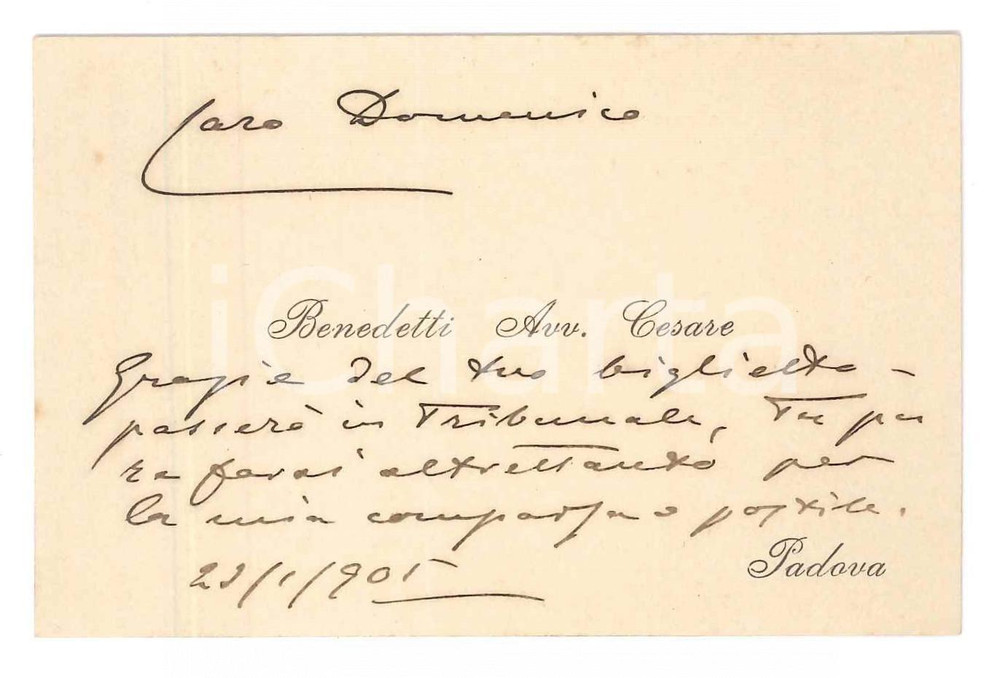 Caro Domenico
Benedetti Avv. Cesare
Grazie del tuo biglietto -
passerò in Tribunale, Tu pu
re farai altrettanto per
la mia comparsa o postille.
/1/905
Padova
iCharta